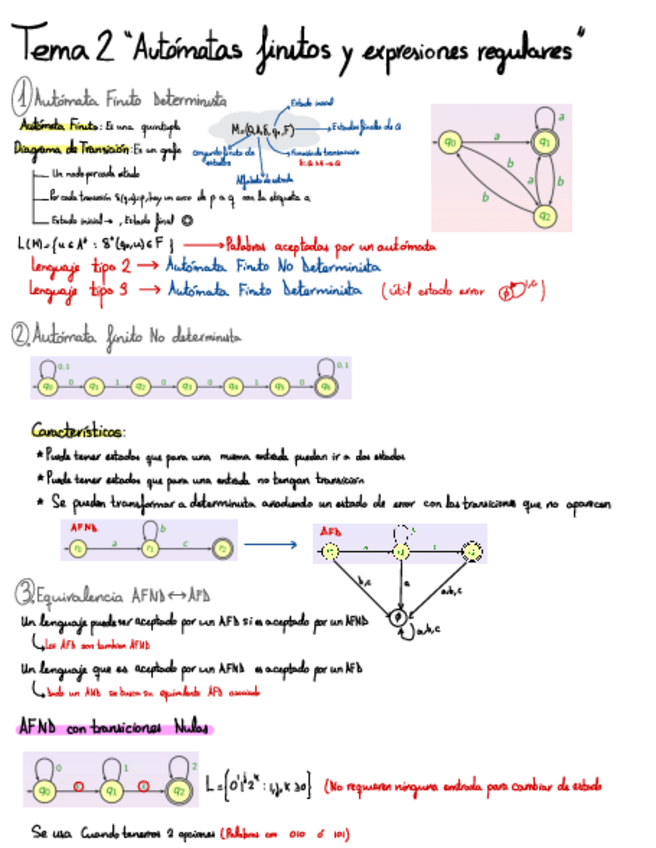 Tema 2 "Autómatas finitos y expresiones regulares"
1 Autómata Finito Determinista
Autómata Finito: Es una quintupla
Diagrama de Transición: Es un grafo
Estado inicial
M=(Q,A,δ,q₀,F)
Estados finales de Q
conjunto finito de estados
Función de transición
δ: Q x A → Q
Alfabeto de entrada
Un nodo por cada estado
Por cada transición δ(q,a)=p, hay un arco de p a q con la etiqueta a
Estado inicial →, Estado final ◎
q₀ a q₁ a
b a b
b q₂
L(M)={u ∈ A* : δ*(q₀,u) ∈ F } → Palabras aceptadas por un autómata
Lenguaje tipo 2 → Autómata Finito No Determinista
Lenguaje tipo 3 → Autómata Finito Determinista (útil estado error)
2. Autómata finito No determinista
0,1 0,1
q₀ 0 q₁ 1 q₂ 0 q₃ 0 q₄ 1 q₅ 0 q₆
Características:
* Puede tener estados que para una misma entrada puedan ir a dos estados
* Puede tener estados que para una entrada no tengan transición
* Se pueden transformar a determinista añadiendo un estado de error con las transiciones que no aparecen
AFND b
r₀ a r₁ c r₂
AFD
b,c a a,b,c
a,b,c
3. Equivalencia AFND ↔ AFD
Un lenguaje puede ser aceptado por un AFD si es aceptado por un AFND
Los AFD son tambien AFND
Un lenguaje que es aceptado por un AFND es aceptado por un AFD
dado un AFND se busca su equivalente AFD asociado
AFND con transiciones Nulas
0 1 2
q₀ q₁ q₂
L={0ⁱ1ʲ2ᵏ : i,j,k ≥ 0} (No requieren ninguna entrada para cambiar de estado
Se usa Cuando tenemos 2 opciones (Palabras con 010 ó 101)